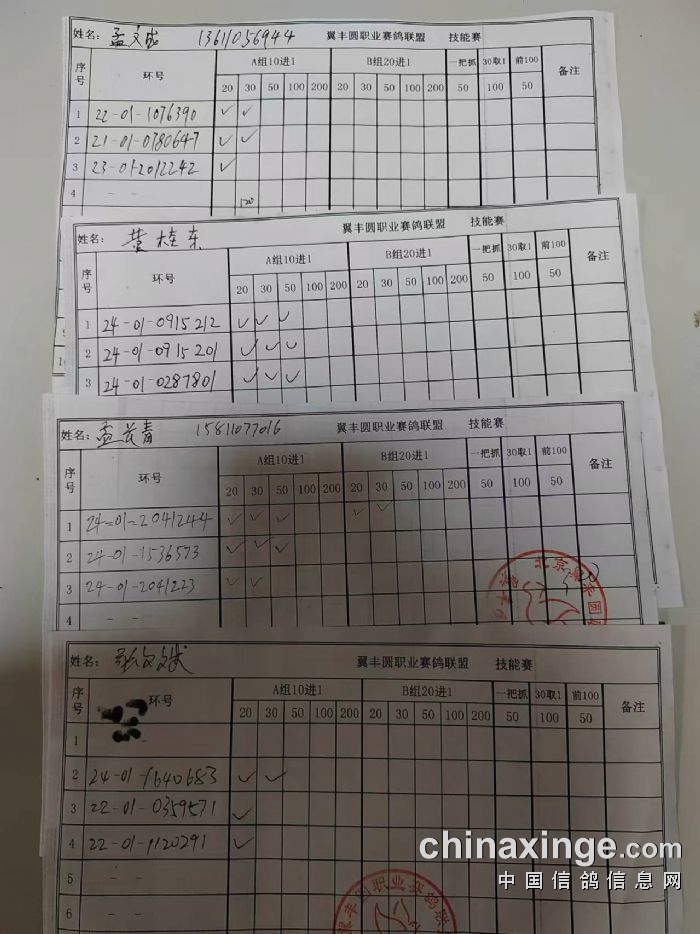 姓名: 孟文成 13611056944 翼丰圆职业赛鸽联盟 技能赛
序号 环号 A组10进1 B组20进1 一把抓 30取1 前100 备注
20 30 50 100 200 20 30 50 100 200 50 100 50
1 22-01-1076390 ✓ ✓
2 21-01-0780647 ✓ ✓
3 23-01-2012242 ✓
4 - -
姓名: 桂东 翼丰圆职业赛鸽联盟 技能赛
序号 环号 A组10进1 B组20进1 一把抓 30取1 前100 备注
20 30 50 100 200 20 30 50 100 200 50 100 50
1 24-01-0915212 ✓ ✓ ✓
2 24-01-0915201 ✓ ✓ ✓
3 24-01-0287801 ✓ ✓ ✓
姓名: 孟长青 15811077016 翼丰圆职业赛鸽联盟 技能赛
序号 环号 A组10进1 B组20进1 一把抓 30取1 前100 备注
20 30 50 100 200 20 30 50 100 200 50 100 50
1 24-01-2041244 ✓ ✓ ✓ ✓ ✓
2 24-01-1536573 ✓ ✓ ✓
3 24-01-2041223 ✓ ✓
4 - -
姓名: 张文斌 翼丰圆职业赛鸽联盟 技能赛
序号 环号 A组10进1 B组20进1 一把抓 30取1 前100 备注
20 30 50 100 200 20 30 50 100 200 50 100 50
1 -
2 24-01-1640683 ✓ ✓
3 22-01-0359571 ✓
4 22-01-1120291 ✓
5 - -
6 - -
chinaxinge.com
中国信鸽信息网